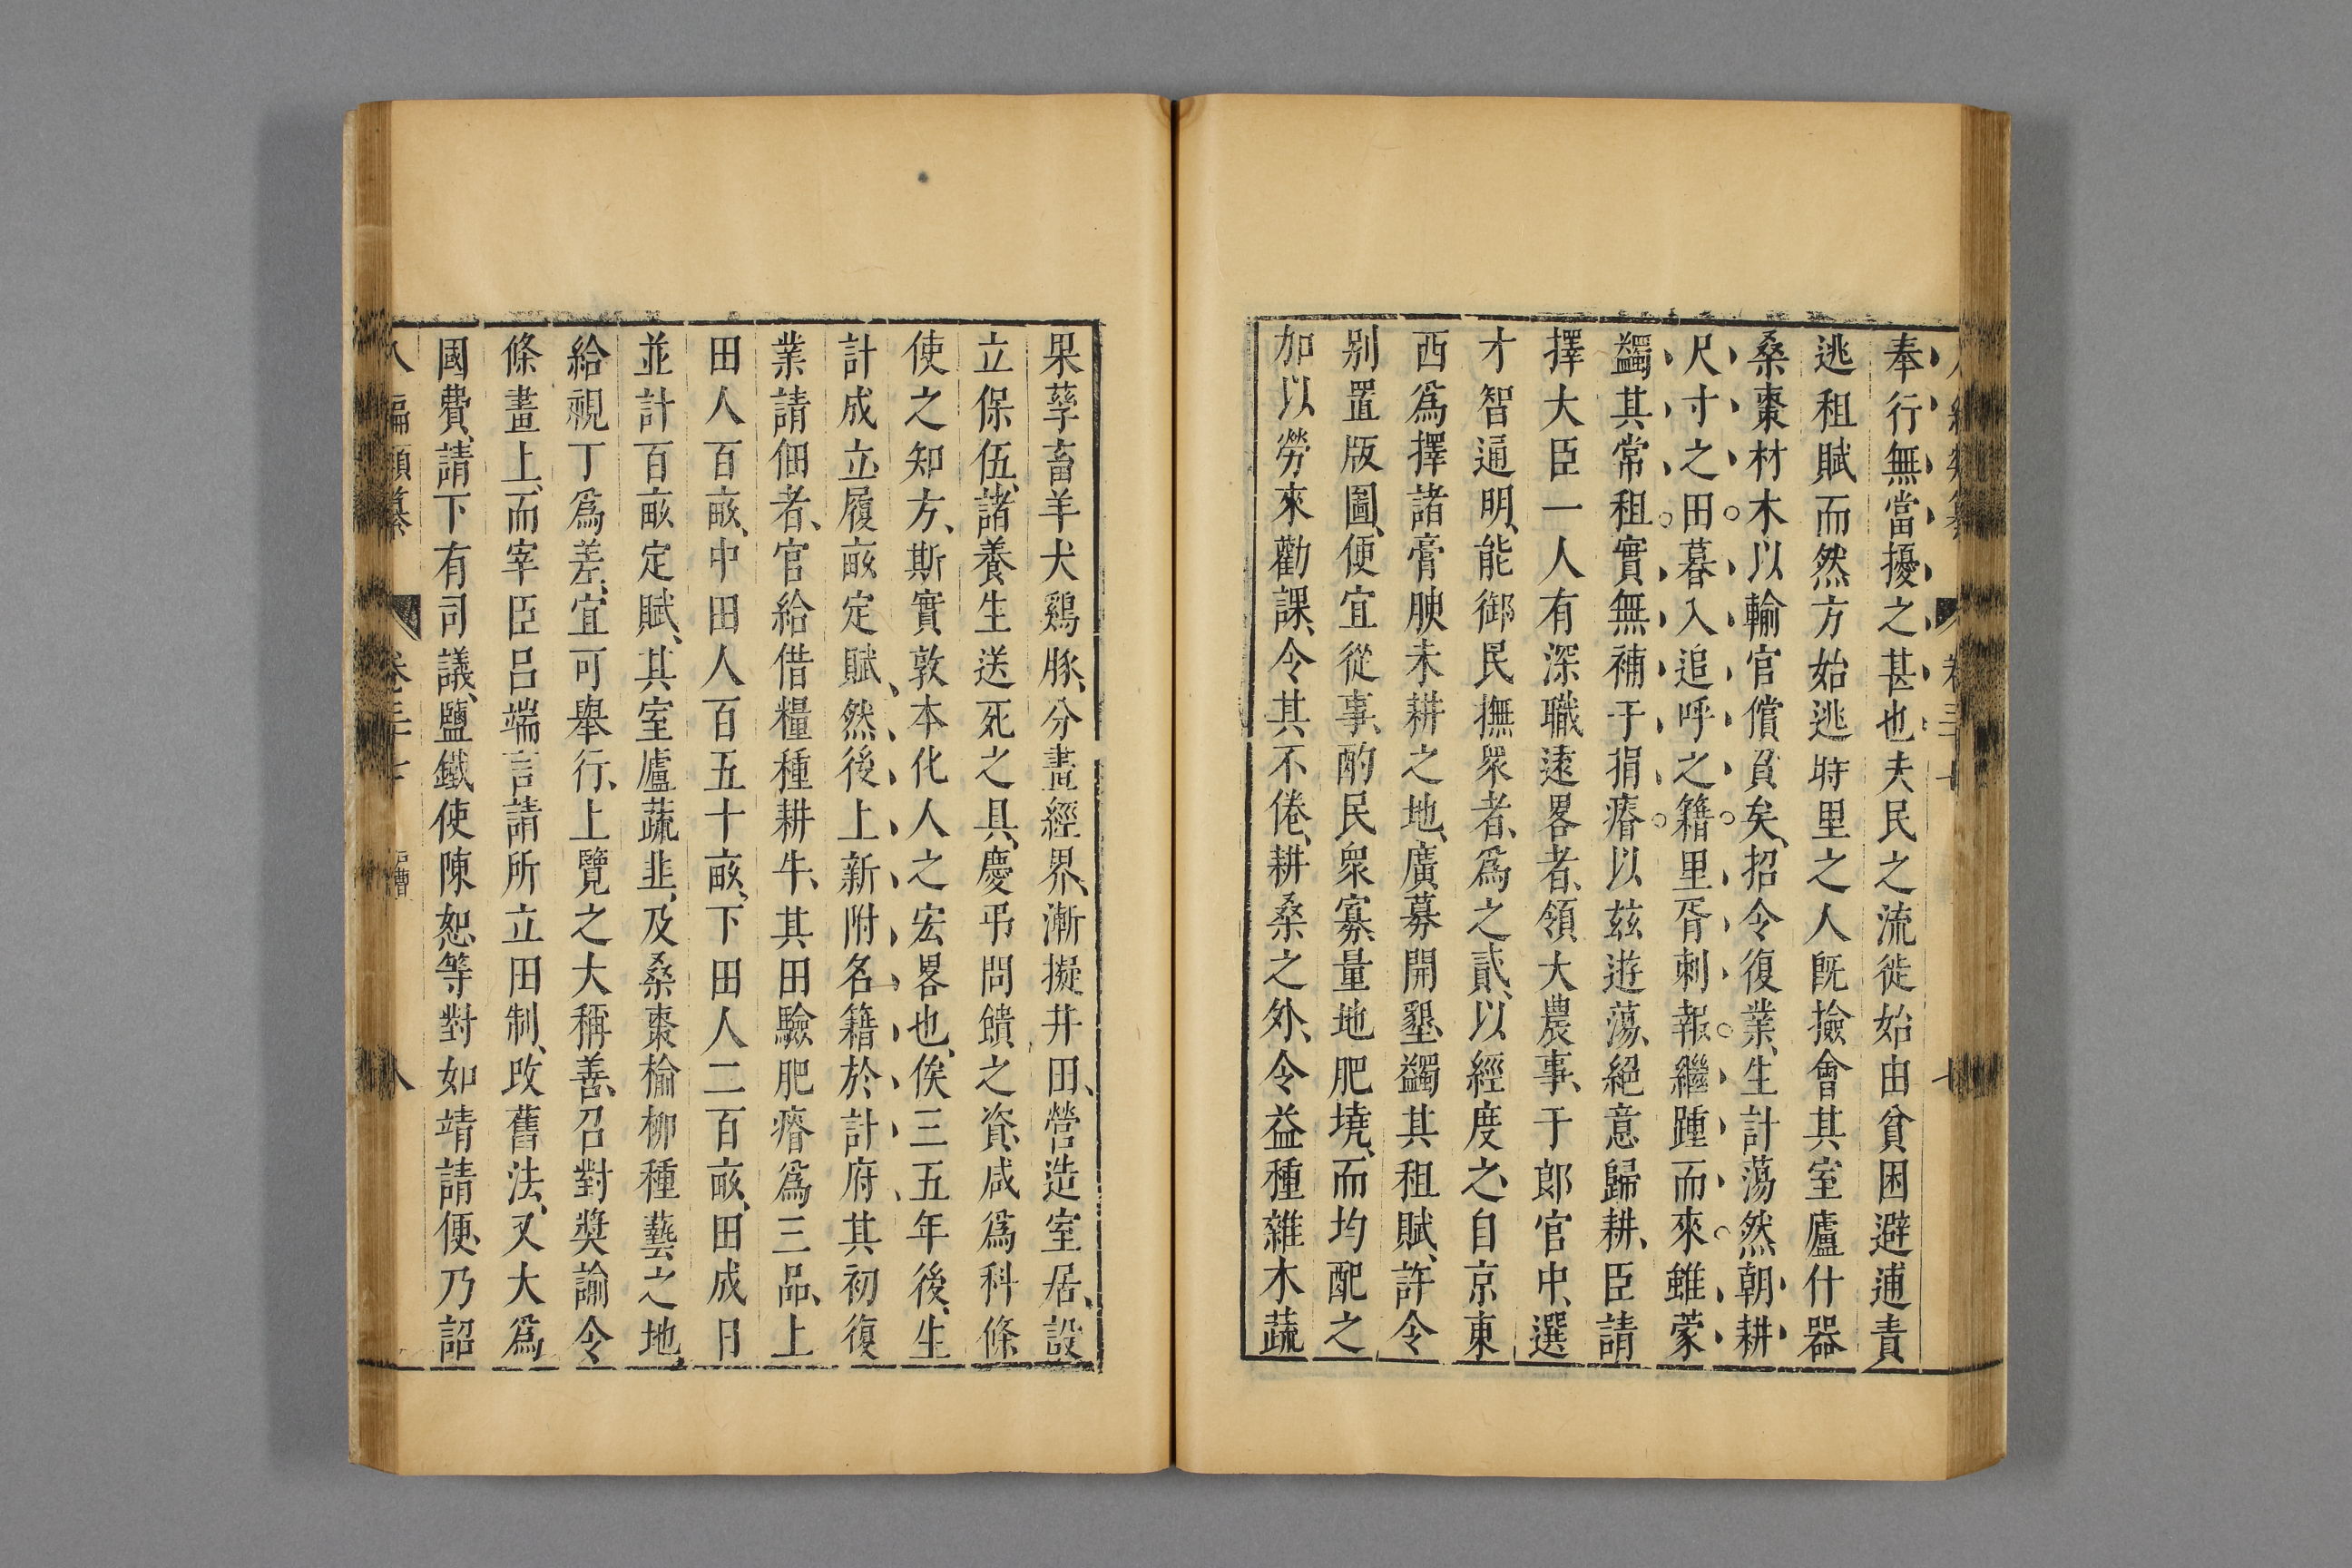 奉行無當擾之甚也夫民之流徙始由貧困避逋責
逃租賦而然方始逃時里之人旣撿會其室廬什器
桑棗材木以輸官償負矣、招令復業、生計蕩然朝耕
尺寸之田暮入追呼之籍里胥刺報繼踵而來雖蒙
蠲其常租實無補于捐瘠以兹遊蕩、絕意歸耕、臣請
擇大臣一人有深職遠畧者、領大農事、于郎官中、選
才智通明、能御民撫衆者、爲之貳、以經度之、自京東
西爲擇諸膏腴未耕之地、廣募開墾、蠲其租賦、許令
别置版圖、便宜從事、酌民衆寡、量地肥墝、而均配之
加以勞來勸課、令其不倦、耕桑之外、令益種雜木蔬
果孳畜羊犬鷄豚、分畫經界、漸擬井田、營造室居、設
立保伍、諸養生送死之具、慶弔問饋之資、咸爲科條
使之知方、斯實敦本化人之宏畧也、俟三五年後、生
計成立、履畝定賦、然後上新附名籍於計府其初復
業請佃者、官給借糧種耕牛、其田驗肥瘠爲三品、上
田人百畝、中田人百五十畝、下田人二百畝、田成日
並計百畝定賦、其室廬蔬韭、及桑棗榆柳種藝之地、
給視丁爲差、宜可舉行、上覽之大稱善、召對奬諭令
條畫上、而宰臣呂端言請所立田制、攺舊法、又大爲
國費、請下有司議、鹽鐵使陳恕等對如靖請便、乃詔
八編類纂　卷三十七　戸曹　八